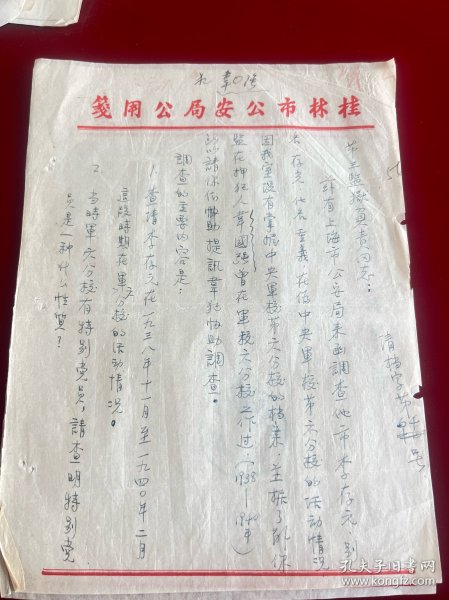 桂林市公安局公用箋
第三監獄負責同志：
茲有上海市公安局来函調查他市李存元，别
名存夫，化名至義，在伪中央軍校第六分校的活动情况
因我室没有掌握中央軍校第六分校的档案，
監在押犯人韋國强曾在軍校六分校工作过，（1938—1940年）
所以請你們帮助提訊韋犯协助調查。
調查的主要内容是：
1、查清李存元在一九三八年十一月至一九四〇年二月
這段時期在軍六分校的活动情况。
2、当時軍六分校有特别党員，請查明特别党
員是一种什么性質？
孔夫子旧书网
www.kongfz.com